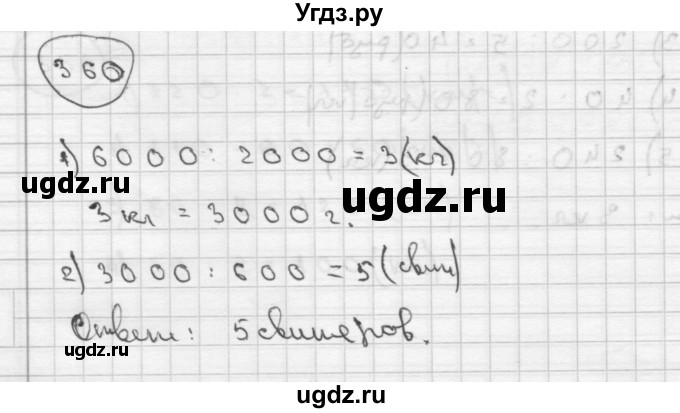 Угдз.ру
360
1) 6000 : 2000 = 3 (кг)
ugdz.ru
ugdz.ru
3 кг = 3000 г.
2) 3000 : 600 = 5 (свит)
ugdz.ru
Ответ: 5 свитеров.
ugdz.ru